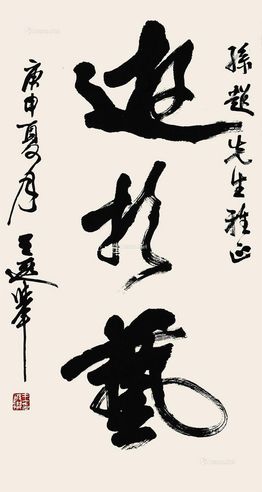 孫超先生雅正
遊於藝
庚申夏月 王遐舉